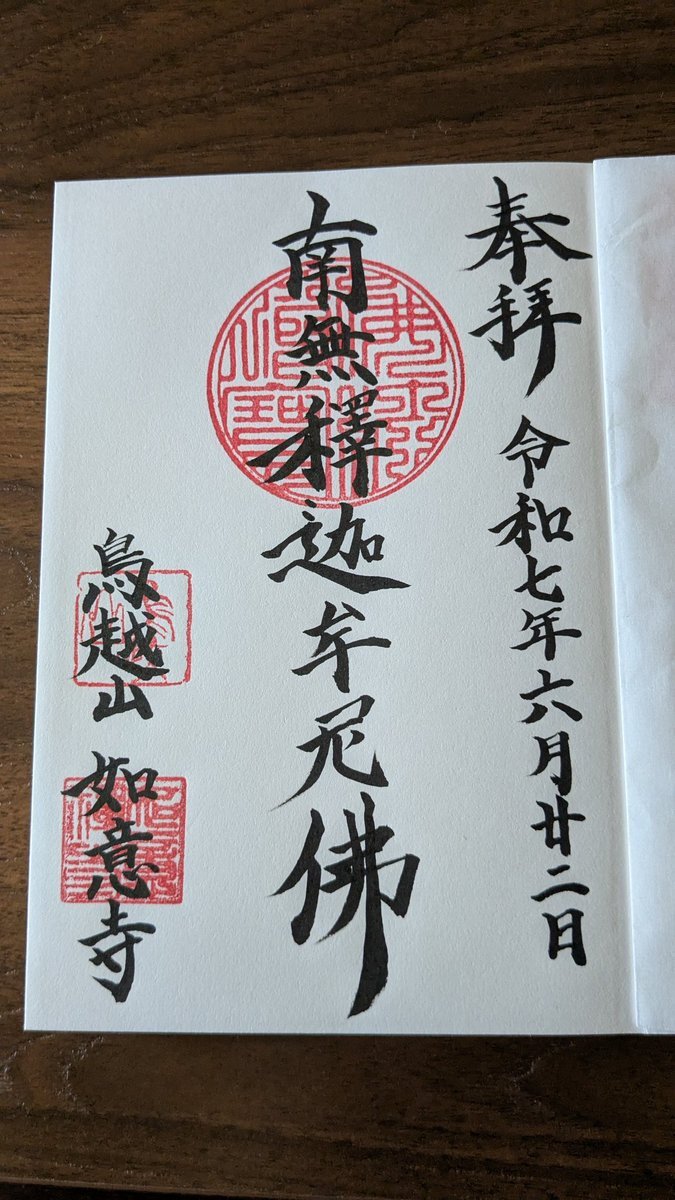 奉拝 令和七年六月廿二日
南無釋迦牟尼佛
鳥越山 如意寺